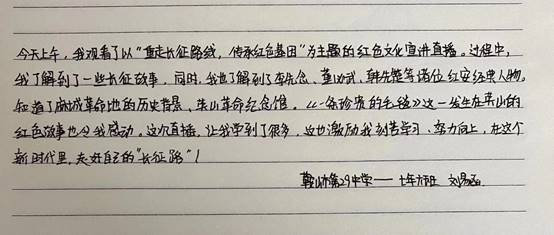 今天上午，我观看了以“重走长征路线，传承红色基因”为主题的红色文化宣讲直播。过程中，
我了解到了一些长征故事，同时，我也了解到了李先念、董必武、韩先楚等诸位红安经典人物。
知道了鹿城革命地的历史背景、英山革命纪念馆。《一条珍贵的毛毯》这一发生在英山的
红色故事也令我感动。这次直播，让我学到了很多，这也激励我刻苦学习、努力向上，在这个
新时代里，走好自己的“长征路”！
鞍山市第29中学——七年六班 刘易涵